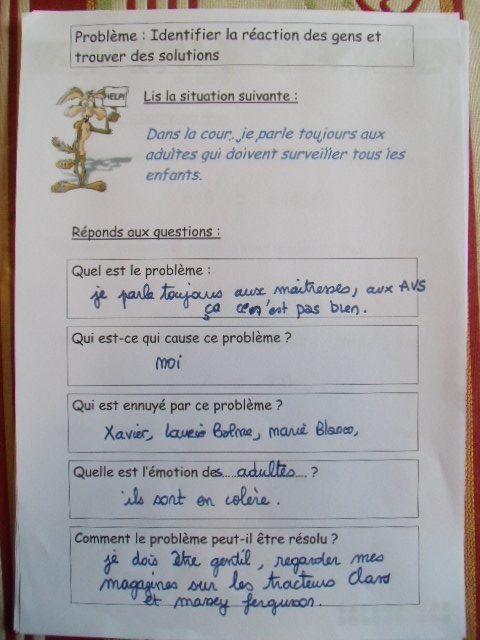 Problème : Identifier la réaction des gens et
trouver des solutions
HELP!
Lis la situation suivante :
Dans la cour, je parle toujours aux
adultes qui doivent surveiller tous les
enfants.
Réponds aux questions :
Quel est le problème :
je parle toujours aux maîtresses, aux AVS
ça n'est pas bien.
Qui est-ce qui cause ce problème ?
moi
Qui est ennuyé par ce problème ?
Xavier, marie Blanco,
Quelle est l'émotion des.....adultes.... ?
ils sont en colère.
Comment le problème peut-il être résolu ?
je dois être gentil, regarder mes
magazines sur les tracteurs Claas
et massey ferguson.